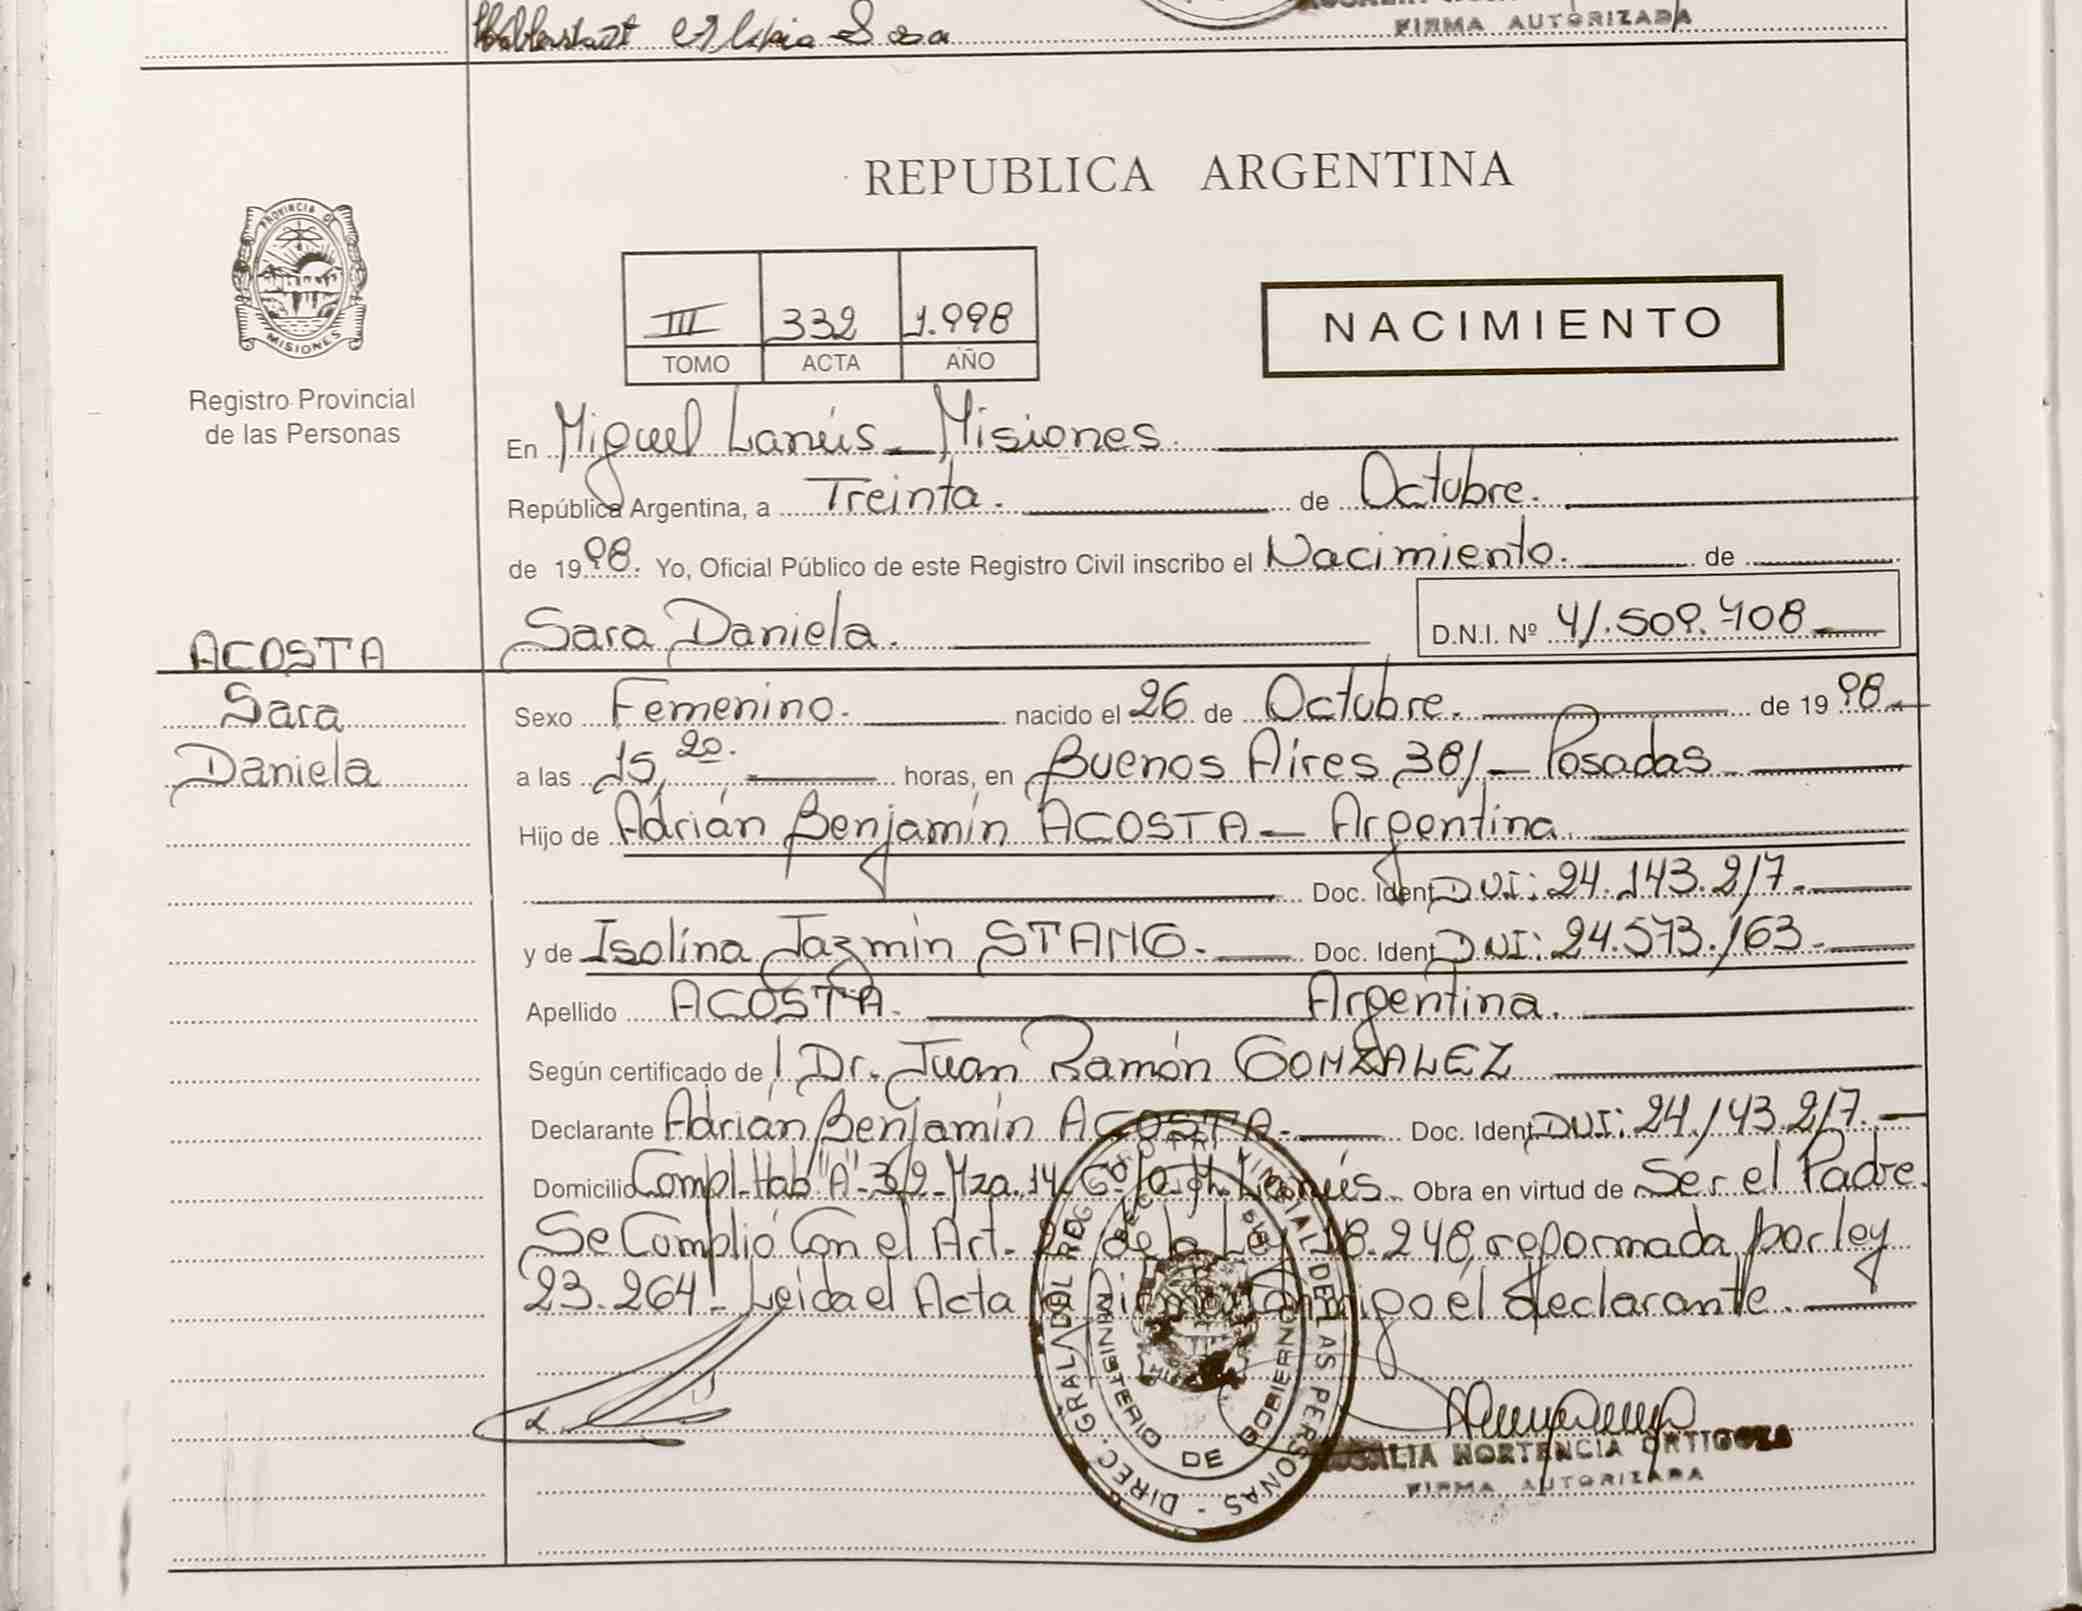 FIRMA AUTORIZADA
REPUBLICA ARGENTINA
PROVINCIA DE
MISIONES
Registro Provincial
de las Personas
III 332 1.998
TOMO ACTA AÑO
NACIMIENTO
En Miguel Lanús - Misiones.
República Argentina, a Treinta. de Octubre.
de 1998. Yo, Oficial Público de este Registro Civil inscribo el Nacimiento. de
Sara Daniela. D.N.I. Nº 41.509.708
ACOSTA
Sara
Daniela
Sexo Femenino. nacido el 26 de Octubre. de 1998.
a las 15,20. horas, en Buenos Aires 381 - Posadas
Hijo de Adrián Benjamín ACOSTA - Argentina
Doc. Ident. DNI: 24.143.217.
y de Isolina Jazmín STANG. Doc. Ident. DNI: 24.573.163.
Apellido ACOSTA. Argentina.
Según certificado de Dr. Juan Ramón GONZALEZ
Declarante Adrián Benjamín ACOSTA. Doc. Ident. DNI: 24.143.217.
Domicilio Compl. Hab "A" 32 Mza. 14 Lanús. Obra en virtud de Ser el Padre.
Se Cumplió Con el Art. de la Ley 18.248, reformada por ley
23.264. Leída el Acta el declarante.
DIREC. GRAL. DEL REG. PROVINCIAL DE LAS PERSONAS -
MINISTERIO DE GOBIERNO
HORTENCIA ORTIGOZA
FIRMA AUTORIZADA